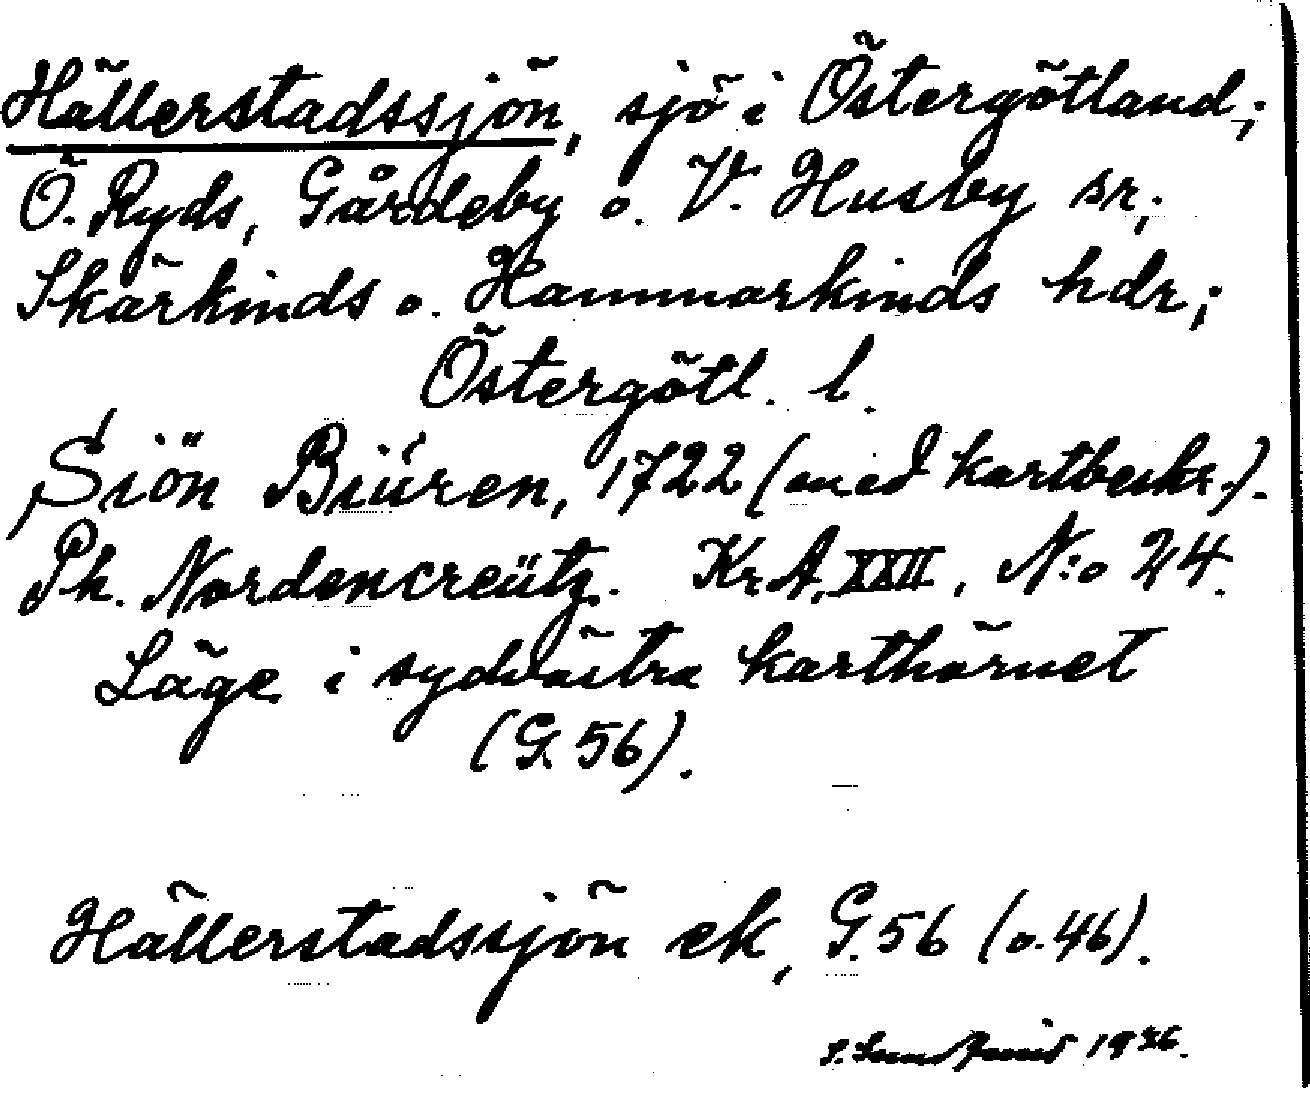 Hällerstadssjön, sjö i Östergötland;
Ö. Ryds, Gårdeby o. V. Husby sr;
Skärkinds o. Hammarkinds hdr;
Östergötl. l.
Siön Biúren, 1722 (med kartbeskr.).
Ph. Nordencreütz. Kr.A. XXII, N:o 24.
Läge i sydvästra karthörnet
(G. 56).
Hällerstadssjön ek, G. 56 (o. 46).
1936.